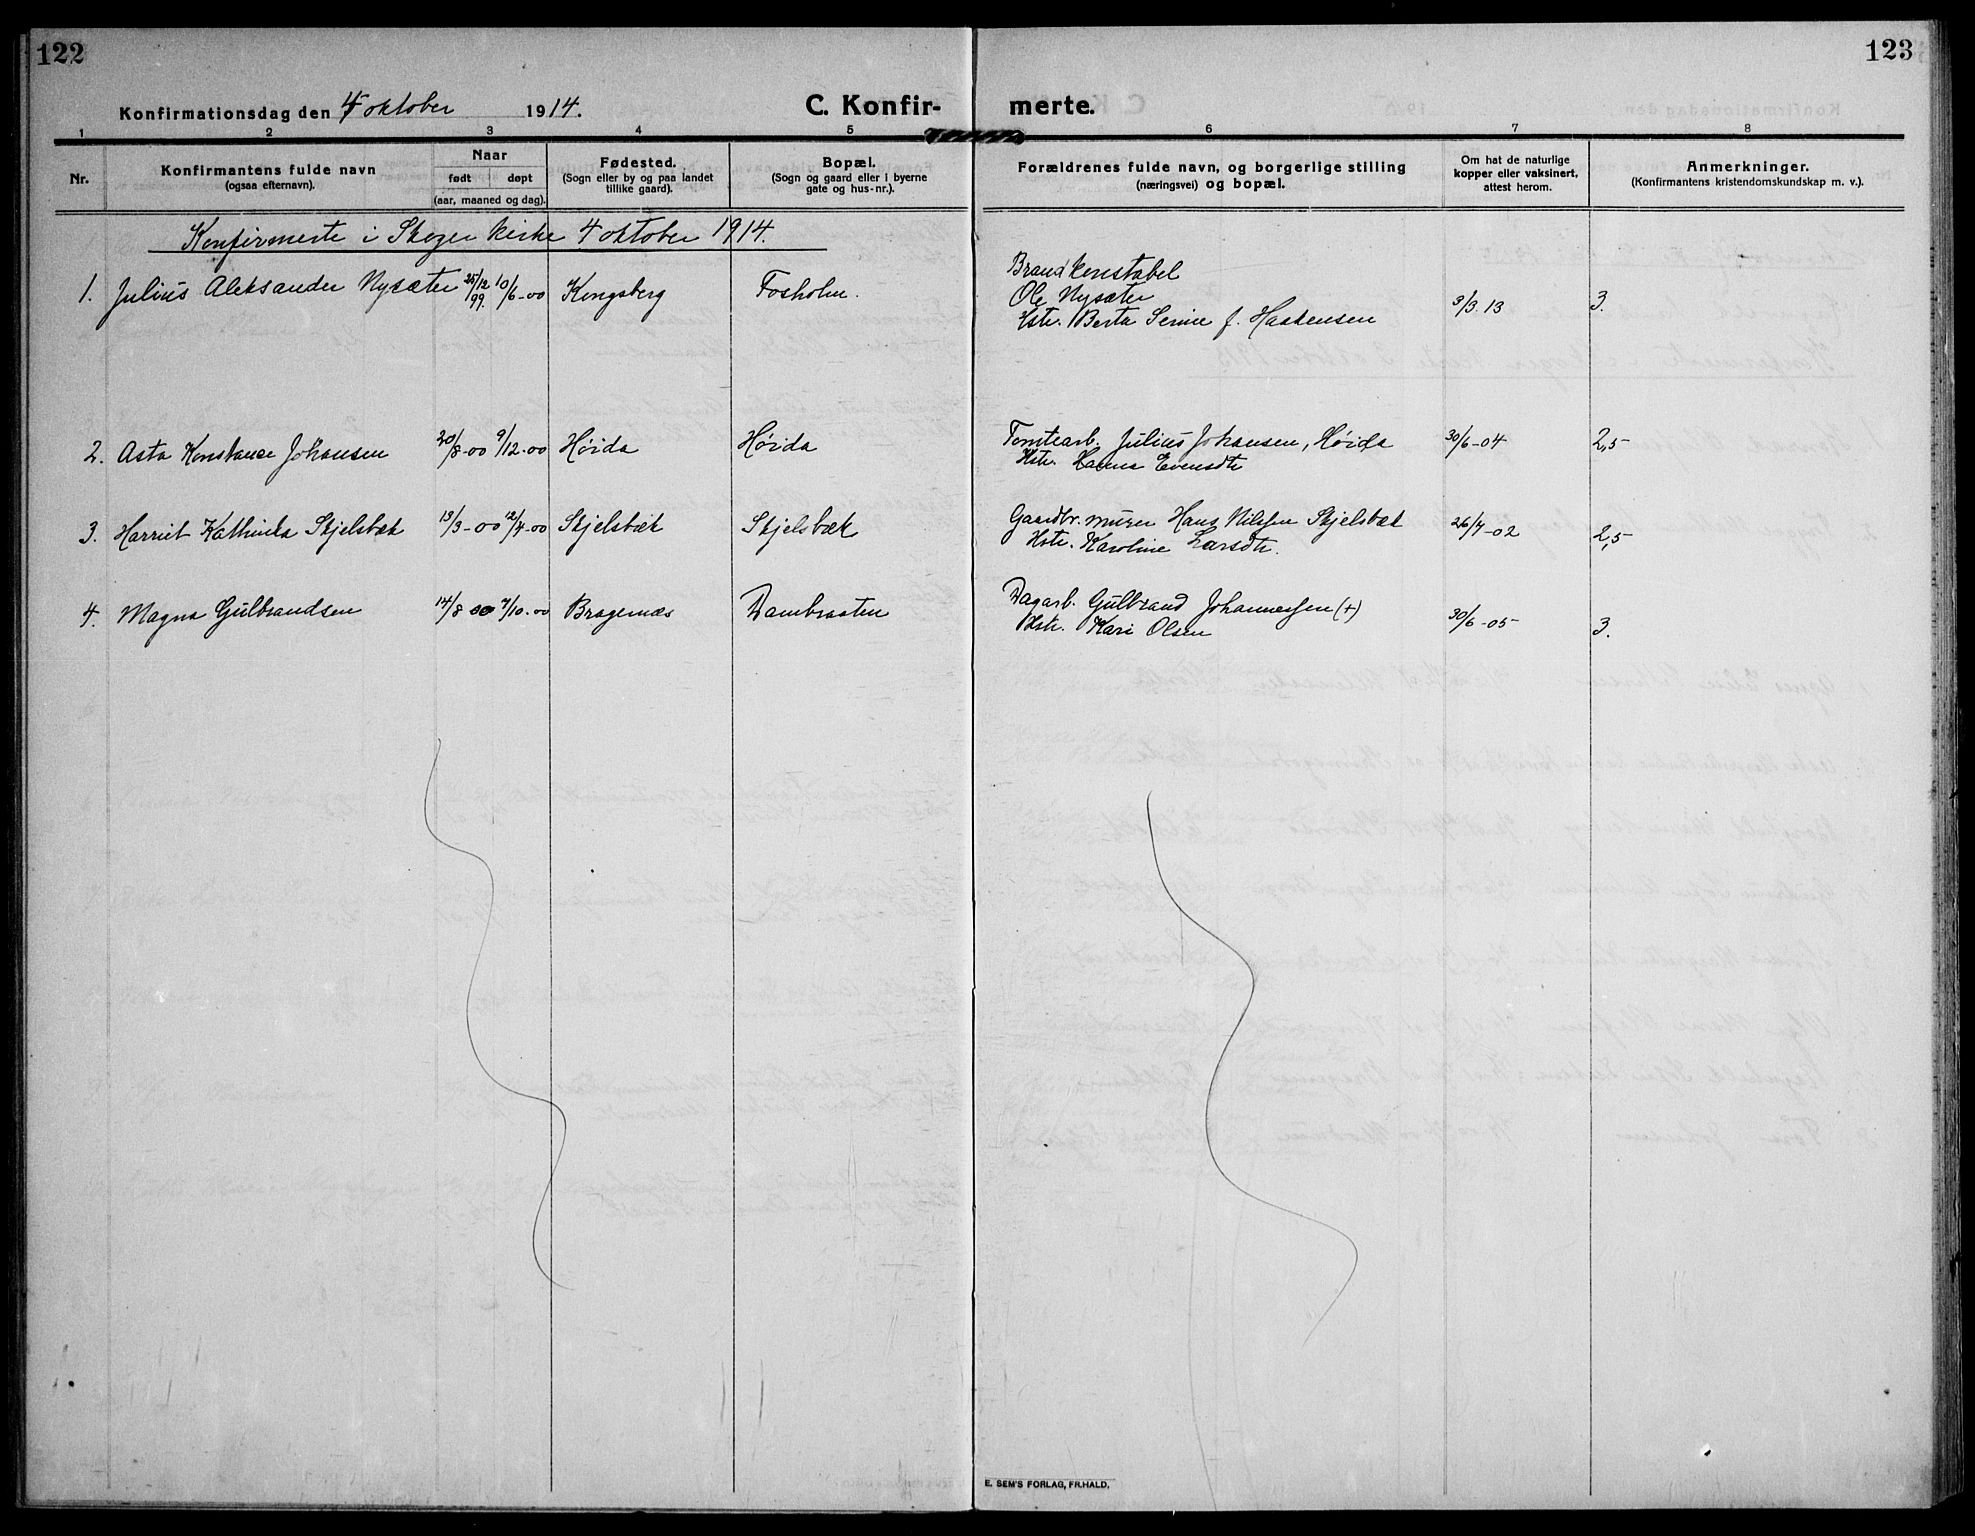 122
123
Konfirmationsdag den 4 oktober 1914.
C. Konfir- merte.
1 2 3 4 5 6 7 8
Nr.
Konfirmantens fulde navn
(ogsaa efternavn).
Naar
født døpt
(aar, maaned og dag).
Fødested.
(Sogn eller by og paa landet
tillike gaard).
Bopæl.
(Sogn og gaard eller i byerne
gate og hus-nr.).
Forældrenes fulde navn, og borgerlige stilling
(næringsvei) og bopæl.
Om hat de naturlige
kopper eller vaksinert,
attest herom.
Anmerkninger.
(Konfirmantens kristendomskundskap m. v.).
Konfirmerte i Skoger kirke 4 oktober 1914.
1. Julius Aleksander Nysæter 25/12 99. 10/6-00 Kongsberg Fosholm.
Brandkonstabel
Ole Nysæter
Hstr. Berta Serine f. Haakensen 3/3.13 3.
2. Asta Konstance Johansen 20/8-00 9/12-00 Høida Høida
Tomtearb. Julius Johansen, Høida 30/6-04 2,5
Hstr. Hanna Evensdtr
3. Harriet Kathinka Skjelsbæk 13/3-00 12/4-00 Skjelsbæk Skjelsbæk
Gaardbr. murer Hans Nilssen Skjelsbæk 26/7-02 2,5
Hstr. Karoline Larsdtr.
4. Magna Gulbrandsen 14/8 00 7/10-00 Bragernæs Dambraaten
Dagarb. Gulbrand Johannessen (+) 30/6-05 3.
Hstr. Kari Olsen
E. SEM'S FORLAG, FR.HALD.